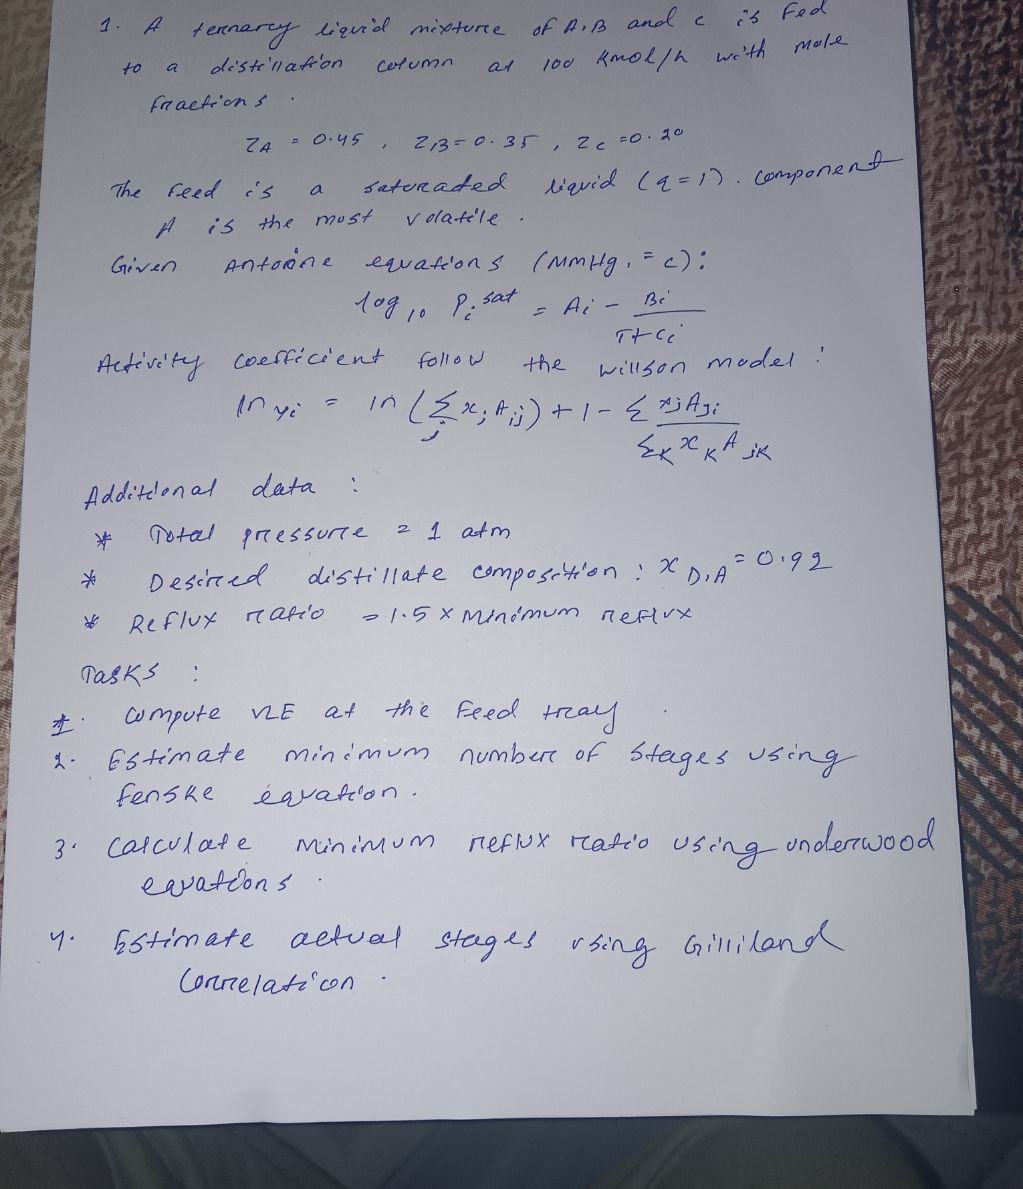 1. A ternary liquid mixture of A,B and c is Fed
to a distillation column at 100 kmol/h with mole
fractions.
Z_A = 0.45, Z_B = 0.35, Z_C = 0.20
The Feed is a saturated liquid (q=1). component
A is the most volatile.
Given Antoine equations (mmHg, °C):
log₁₀ P_i^sat = A_i - B_i / (T + C_i)
Activity coefficient follow the willson model:
ln γ_i = ln (Σ_j x_j A_ij) + 1 - Σ x_j A_ji / Σ_K x_K A_jK
Additional data :
* Total pressure = 1 atm
* Desired distillate composition : x_D,A = 0.92
* Reflux ratio = 1.5 x Minimum reflux
Tasks :
1. Compute VLE at the Feed tray.
2. Estimate minimum number of stages using
fenske equation.
3. Calculate Minimum reflux ratio using underwood
equations.
4. Estimate actual stages using Gilliland
Correlation.